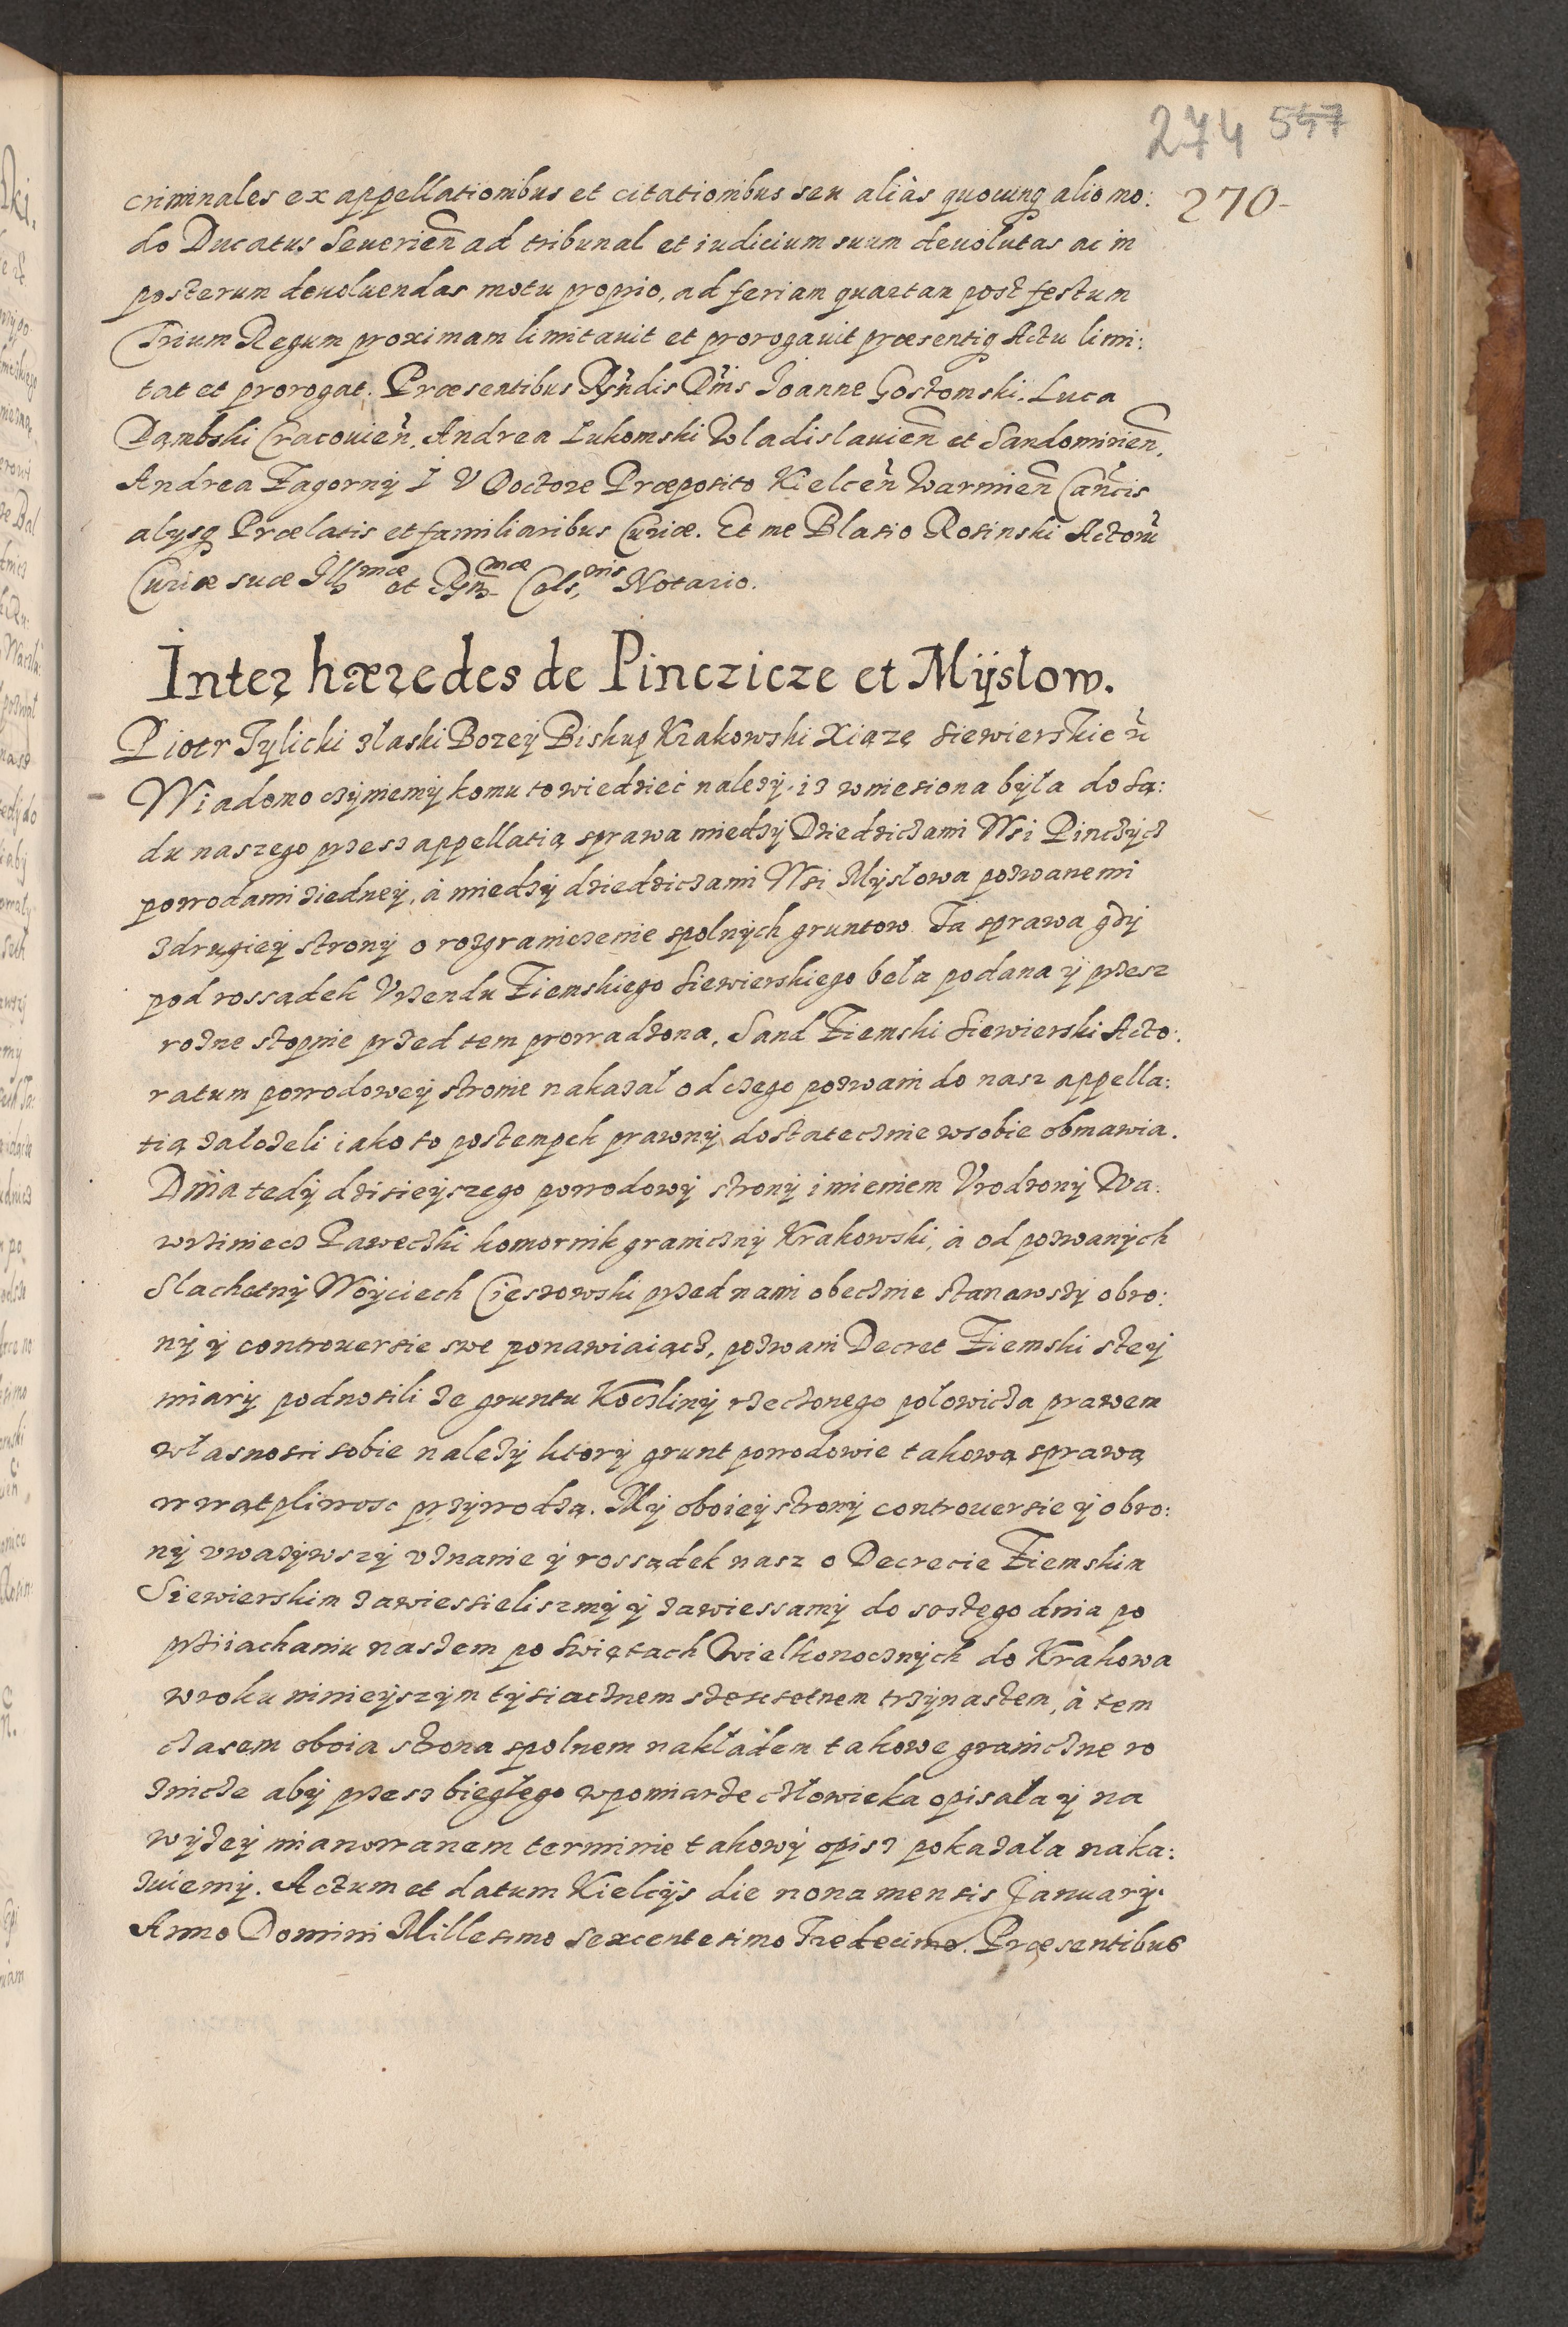 274 547
270-
criminales ex appellationibus et citationibus seu aliàs quocunq alio mo:
do Ducatus Seuerien̄ ad tribunal et iudicium suum deuolutas ac in
posterum deuoluendas motu proprio, ad feriam quartam post festum
Trium Regum proximam limitauit et prorogauit præsentiq Actu limi:
tat et prorogat. Præsentibus Rn̄dis Dn̄is Joanne Gostomski. Luca
Dąmbski Cracouien̄, Andrea Lukomski Wladislauien̄ et Sandomirien̄,
Andrea Zagorny I V Doctore Præposito Kielcen̄ Warmien̄ Can̄cis
alysq Prælatis et familiaribus Curiæ. Et me Blasio Rosinski Actorū
Curiæ suæ Ill^mæ et Rn^mæ Cels^nis Notario.
Inter hæredes de Pinczicze et Mÿslow.
Piotr Tylicki złaski Bozeÿ Biskup Krakowski Xiązę Siewierskie
Wiadomo czÿniemÿ komu to wiedzieć nalezÿ, iz wniesiona bÿła do Są:
du naszego przesz appellatią sprawa miedzÿ Dziedziczami Wsi Pinczÿcz
powodami ziedneÿ, à miedzÿ dziedziczami Wsi Mÿsłowa pozwanemi
zdrugieÿ stronÿ o rozgraniczenie spolnÿch gruntow. Ta sprawa gdÿ
pod rossądek Vrzendu Ziemskiego Siewierskiego beła podana ÿ przesz
rozne stopnie przed tem prowadzona, Sand Ziemski Siewierski Acto:
ratum powodoweÿ stronie nakazał od czego pozwani do nasz appella:
tią załozeli iako to postempek prawnÿ dostatecznie wsobie obmawia.
Dnia tedÿ dzisieÿszego powodowÿ stronÿ imieniem Vrodzonÿ Wa:
wrziniecz Paweczki komornik granicznÿ Krakowski, à od pozwanÿch
Slachetnÿ Woÿciech Cieszowski przed nami obecznie stanawszÿ obro:
nÿ ÿ controuersie swe ponawiaiącz, pozwani Decret Ziemski steÿ
miarÿ podnosili ze gruntu Koczlinÿ rzeczonego polowicza prawem
własnosci sobie nalezÿ ktorÿ grunt powodowie takową sprawą
wwątpliwosc przÿwodzą. Mÿ oboieÿ stronÿ controuersie ÿ obro:
nÿ vwazÿwszÿ vznanie ÿ rossądek nasz o Decrecie Ziemskim
Siewierskim zawiesieliszmÿ ÿ zawiessamÿ do szostego dnia po
prziiachaniu naszem po Swiętach Wielkonocznÿch do Krakowa
wroku ninieÿszÿm tÿsiacznem szescsetnem trzÿnastem, à tem
czasem oboia strona spolnem nakładem takowe graniczne ro
znicze abÿ przesz biegłego wpomiarze człowieka opisała ÿ na
wÿzeÿ mianowanem terminie takowÿ opisz pokazała naka:
zuiemÿ. Actum et datum Kielcÿs die nona mensis Januarÿ.
Anno Domini Millesimo Sexcentesimo Tredecimo. Præsentibus